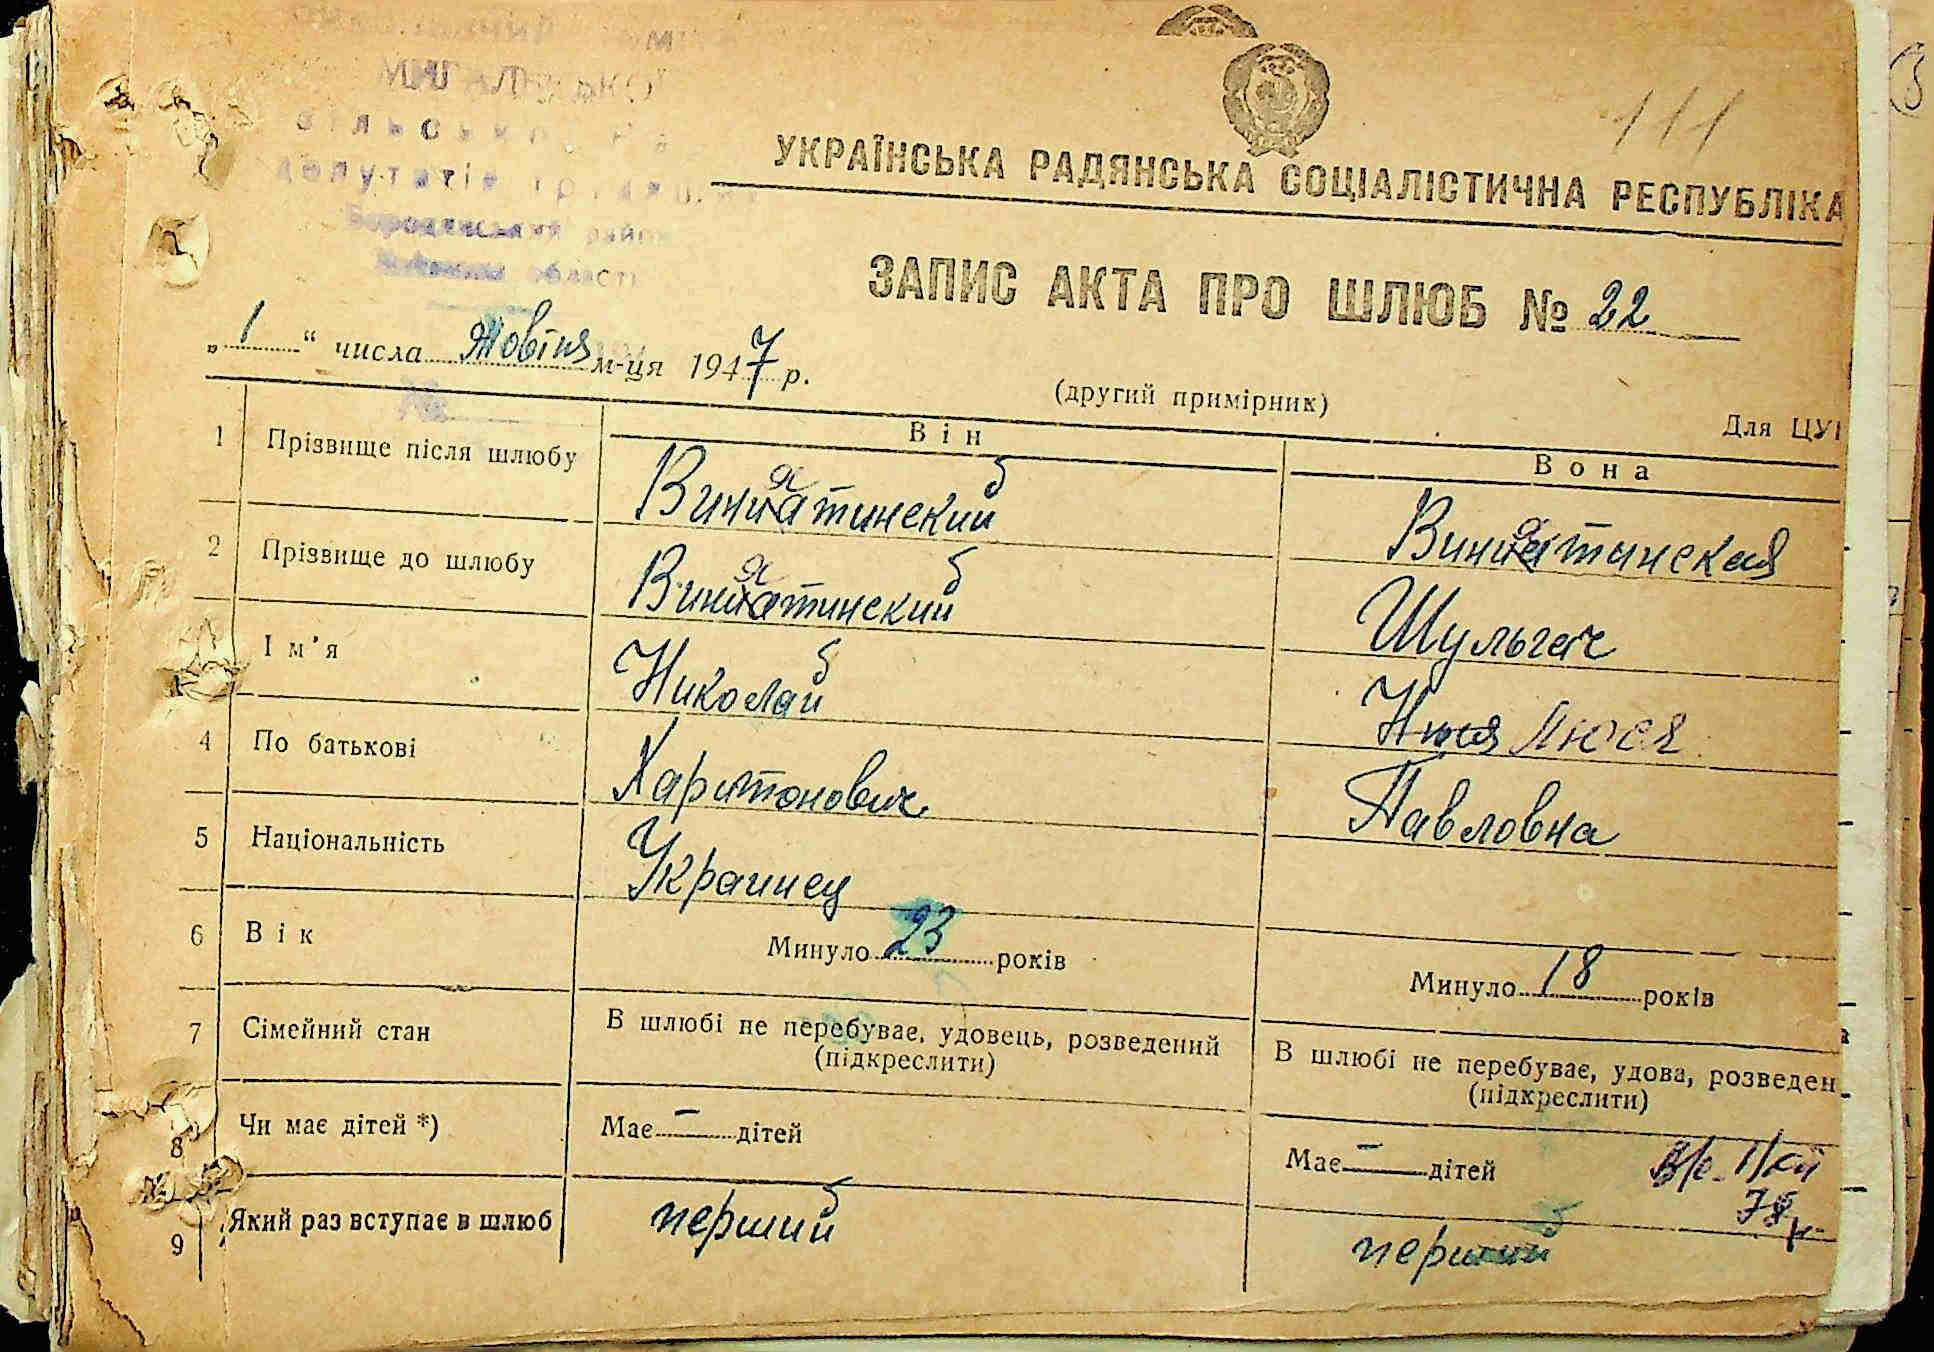 МИГАЛЬСЬКОЇ
депутатів
Бородянський район
області
111
УКРАЇНСЬКА РАДЯНСЬКА СОЦІАЛІСТИЧНА РЕСПУБЛІКА
ЗАПИС АКТА ПРО ШЛЮБ № 22
„ 1 “ числа Жовтня м-ця 1947 р.
№
(другий примірник)
Для ЦУ
Він
Вона
1 Прізвище після шлюбу Винятинский Винятинская
2 Прізвище до шлюбу Винятинский Шульгач
Ім'я Николай Нюся Люся
4 По батькові Харитонович Павловна
5 Національність Украинец
6 Вік Минуло 23 років Минуло 18 років
7 Сімейний стан В шлюбі не перебуває, удовець, розведений В шлюбі не перебуває, удова, розведен
(підкреслити) (підкреслити)
8 Чи має дітей *) Має — дітей Має — дітей
9 Який раз вступає в шлюб перший перший